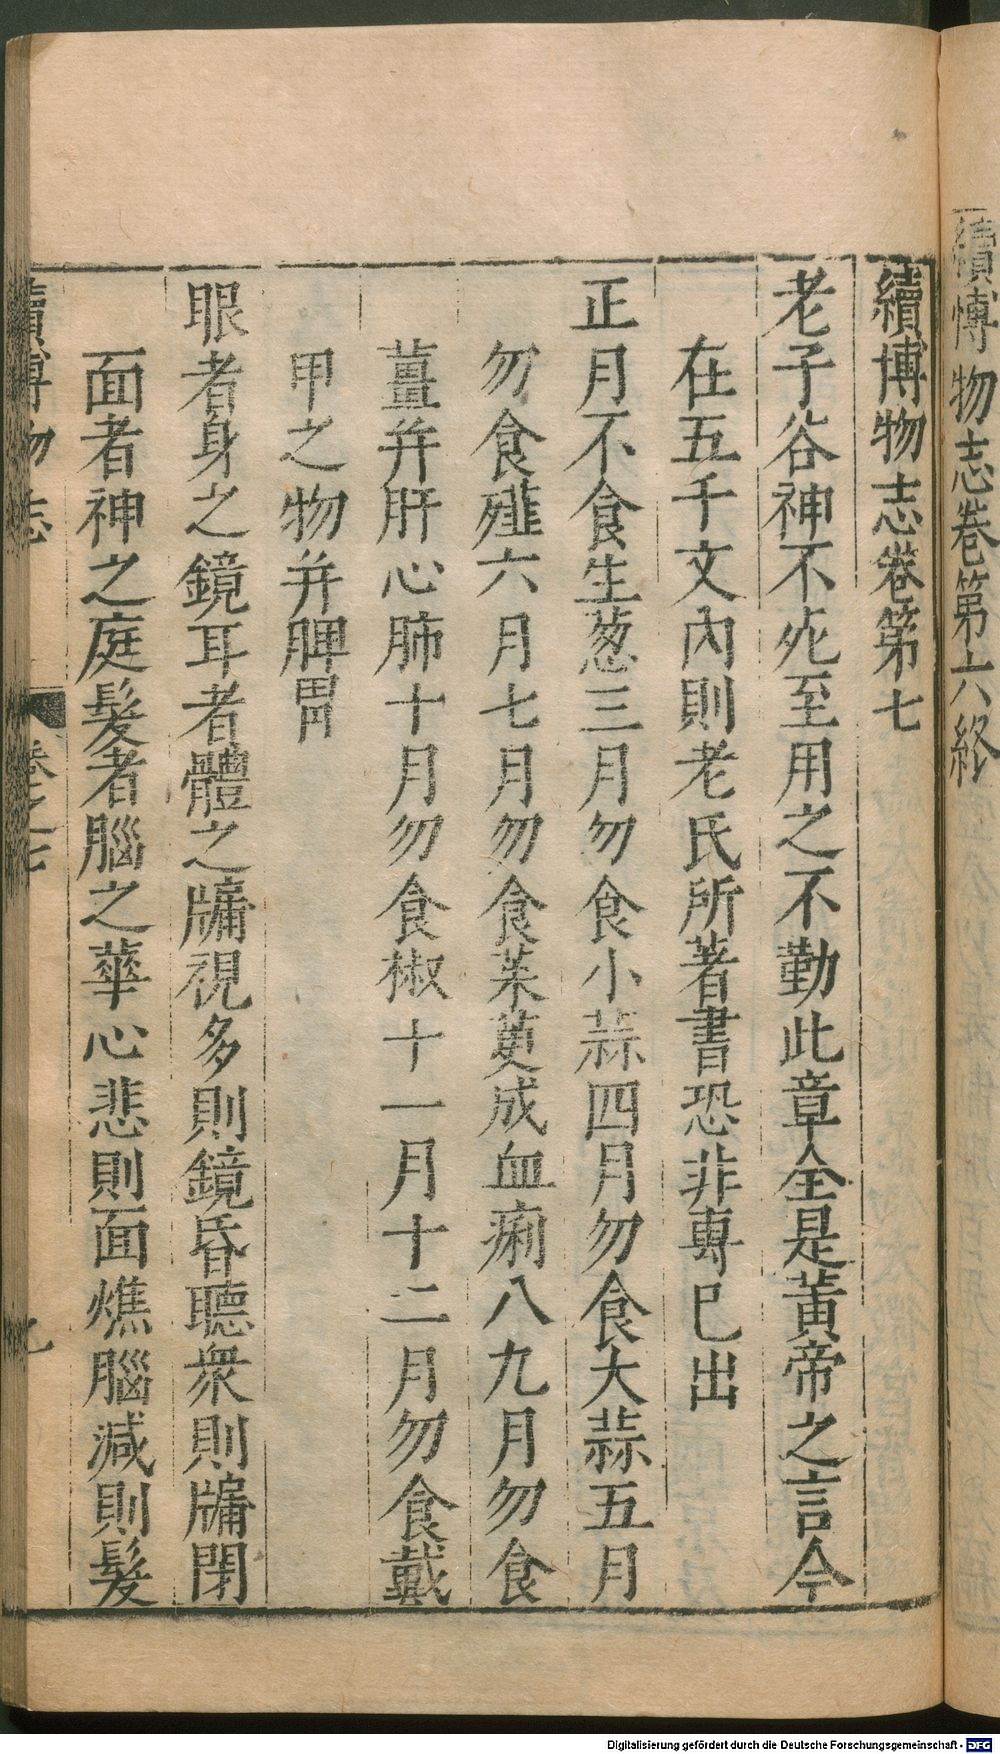 續博物志卷第六終
續博物志卷第七
老子谷神不死至用之不勤此章全是黃帝之言今
在五千文內則老氏所著書恐非專已出
正月不食生葱三月勿食小蒜四月勿食大蒜五月
勿食薤六月七月勿食茱萸成血痢八九月勿食
薑并肝心肺十月勿食椒十一月十二月勿食戴
甲之物并脾胃
眼者身之鏡耳者體之牖視多則鏡昏聽衆則牖閉
面者神之庭髮者腦之華心悲則面燋腦減則髮
續博物志 卷之七
Digitalisierung gefördert durch die Deutsche Forschungsgemeinschaft - DFG